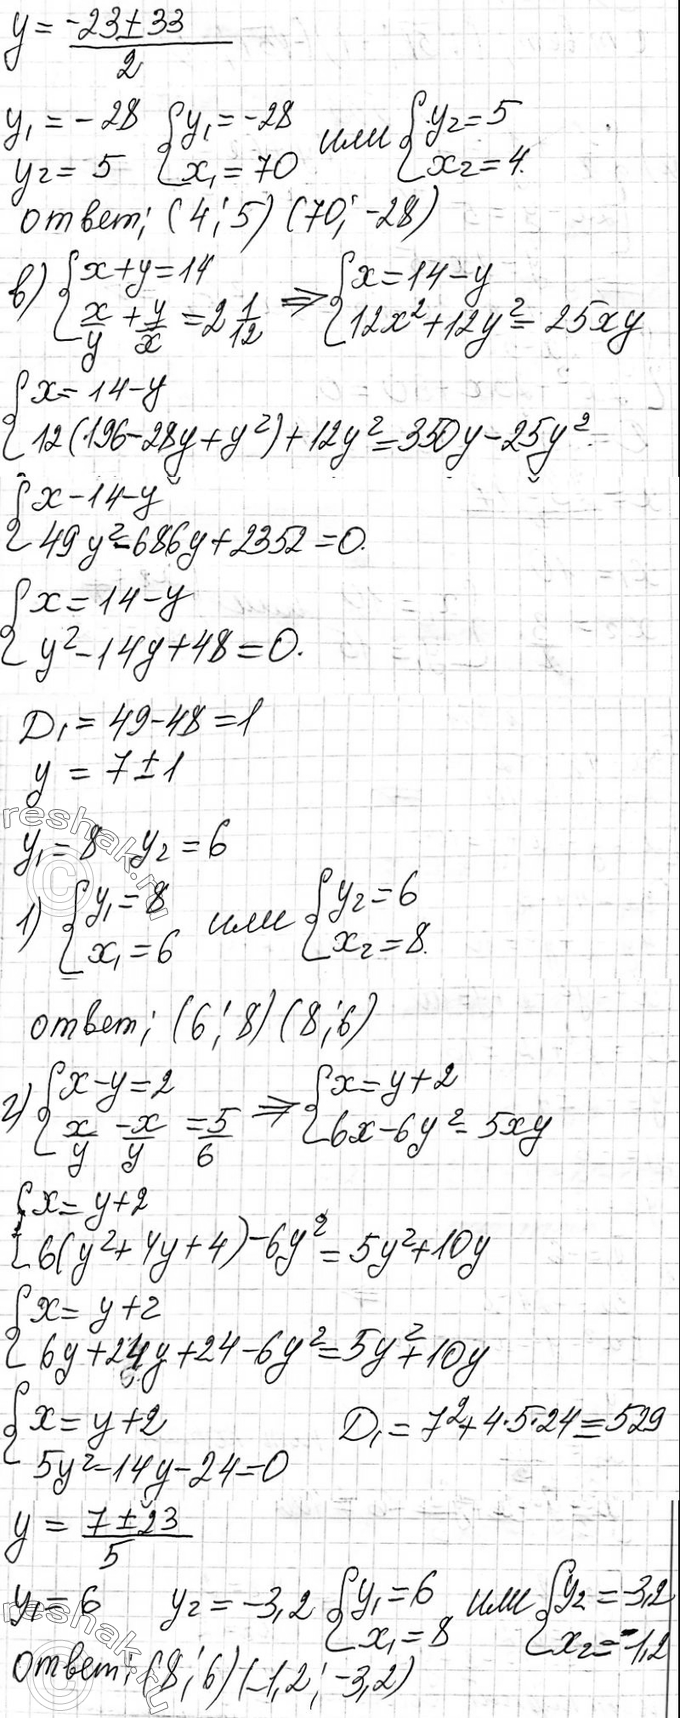 y = (-23±33)/2
y₁ = -28 {y₁ = -28 или {y₂ = 5
y₂ = 5 {x₁ = 70 {x₂ = 4.
ответ; (4; 5) (70; -28)
в) {x+y=14 ⇒ {x=14-y
{x/y + y/x = 2 1/12 {12x²+12y² = 25xy
{x = 14-y
{12(196-28y+y²)+12y²=350y-25y²
{x-14-y
{49y²-686y+2352=0.
{x=14-y
{y²-14y+48=0.
D₁ = 49-48=1
y = 7±1
y₁=8 y₂=6
1) {y₁=8 или {y₂=6
{x₁=6 {x₂=8.
ответ; (6; 8) (8; 6)
г) {x-y=2 ⇒ {x=y+2
{x/y - x/y = 5/6 {6x-6y² = 5xy
{x=y+2
{6(y²+4y+4)-6y² = 5y²+10y
{x=y+2
{6y+24y+24-6y²=5y²+10y
{x=y+2 D₁ = 7²+4·5·24=529
{5y²-14y-24=0
y = (7±23)/5
y₁=6 y₂=-3,2 {y₁=6 или {y₂=-3,2
{x₁=8 {x₂=-1,2
ответ; (8; 6) (-1,2; -3,2)
reshak.ru